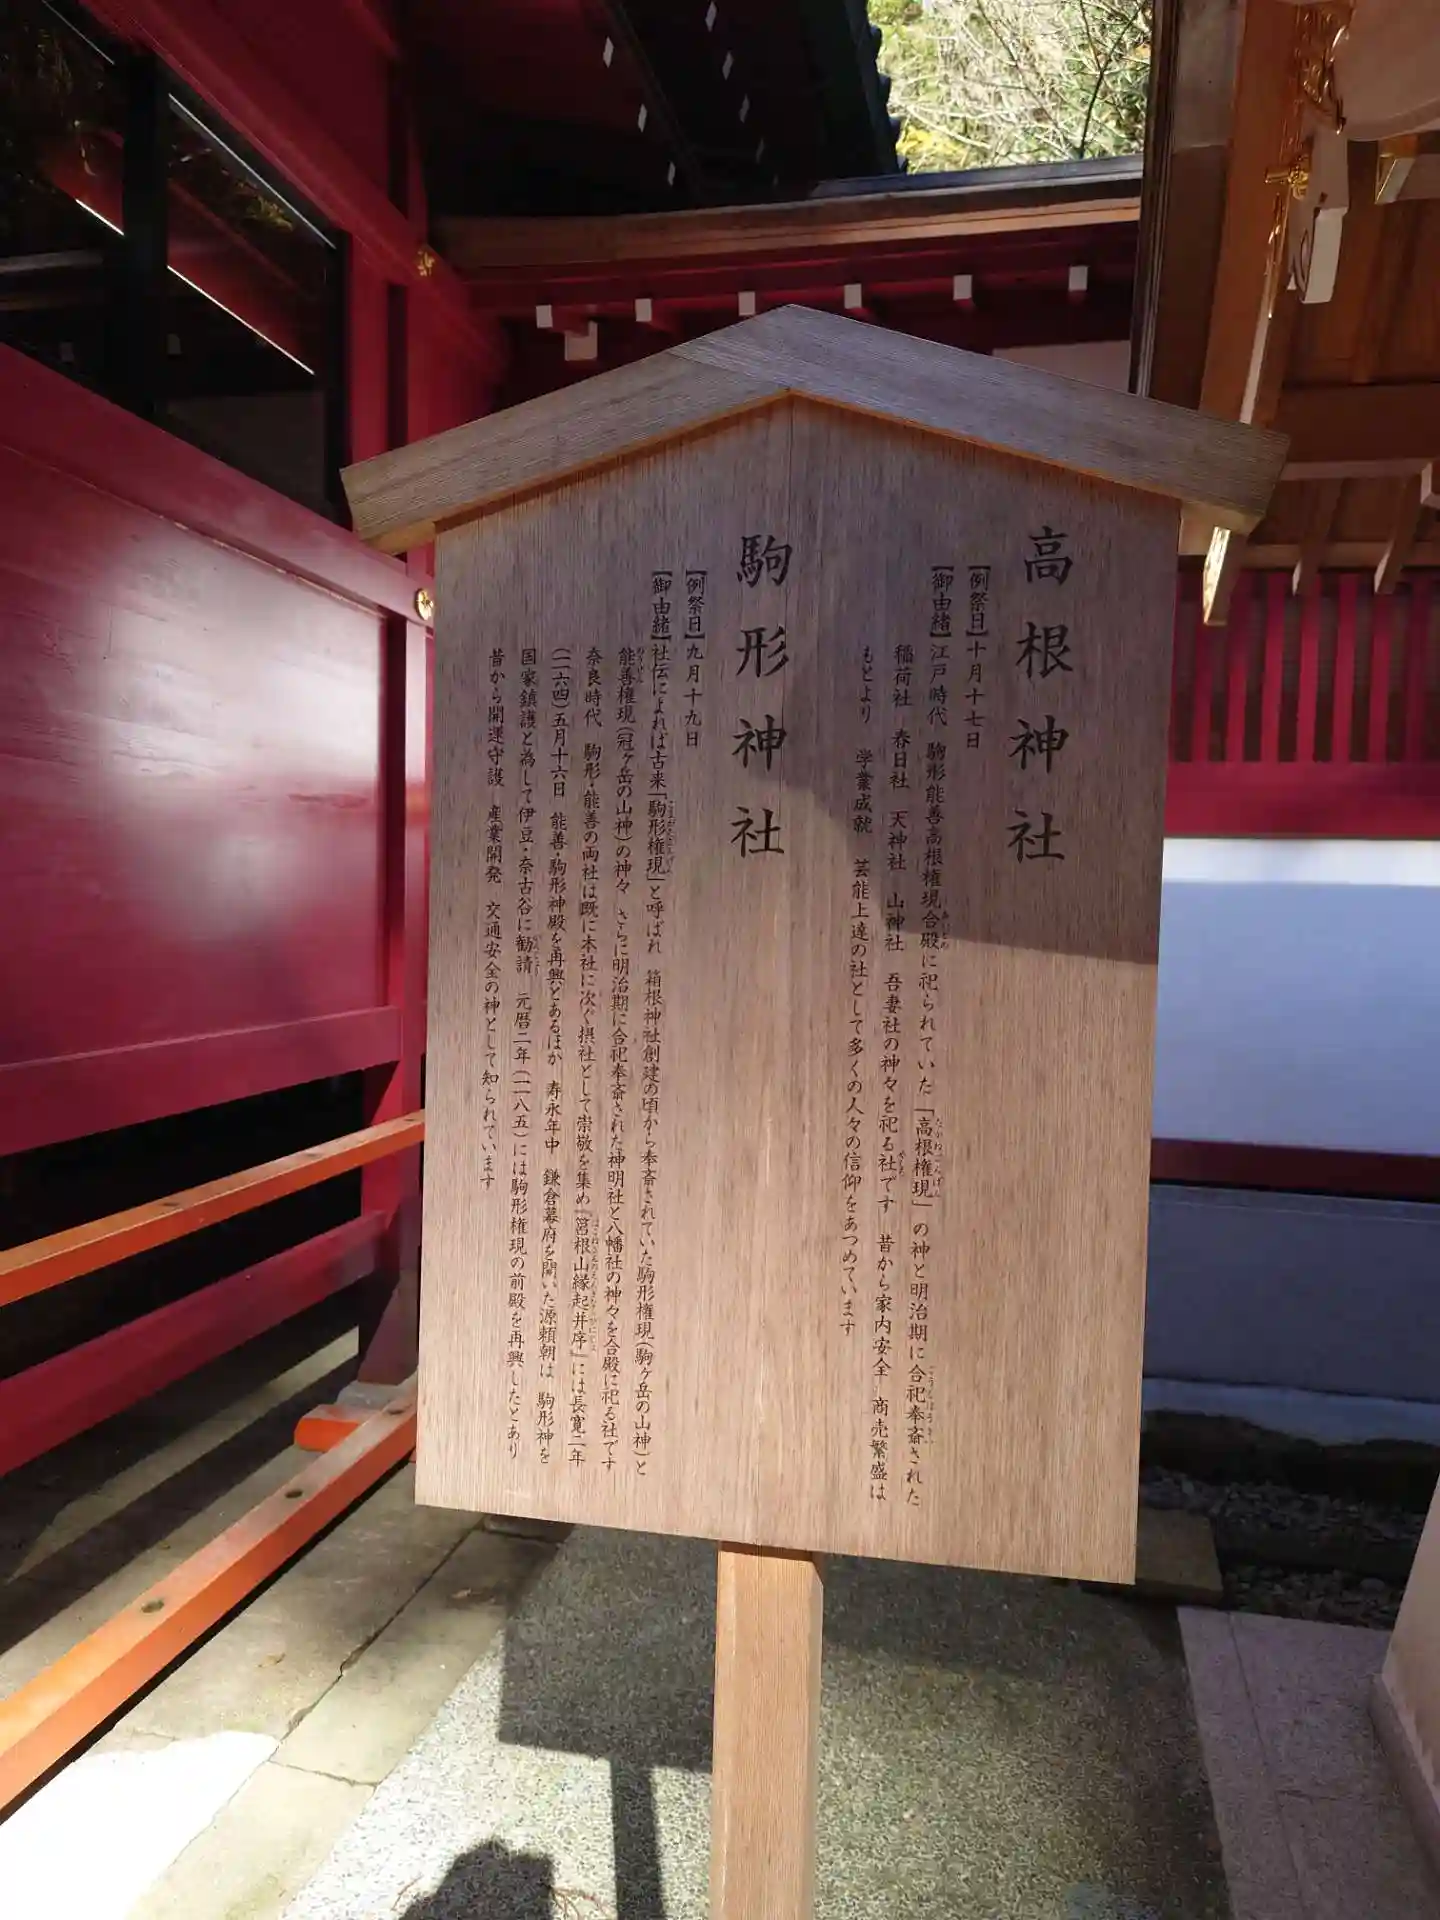 高根神社
【例祭日】十月十七日
【御由緒】江戸時代　駒形能善高根権現合殿に祀られていた「高根権現」の神と明治期に合祀奉斎された
稲荷社　春日社　天神社　山神社　吾妻社の神々を祀る社です　昔から家内安全　商売繁盛は
もとより　学業成就　芸能上達の社として多くの人々の信仰をあつめています
駒形神社
【例祭日】九月十九日
【御由緒】社伝によれば古来「駒形権現」と呼ばれ　箱根神社創建の頃から奉斎されていた駒形権現(駒ヶ岳の山神)と
能善権現(冠ヶ岳の山神)の神々　さらに明治期に合祀奉斎された神明社と八幡社の神々を合殿に祀る社です
奈良時代　駒形・能善の両社は既に本社に次ぐ摂社として崇敬を集め『筥根山縁起并序』には長寛二年
(一一六四)五月十六日　能善・駒形神殿を再興とあるほか　寿永年中　鎌倉幕府を開いた源頼朝は　駒形神を
国家鎮護と為して伊豆・奈古谷に勧請　元暦二年(一一八五)には駒形権現の前殿を再興したとあり
昔から開運守護　産業開発　交通安全の神として知られています